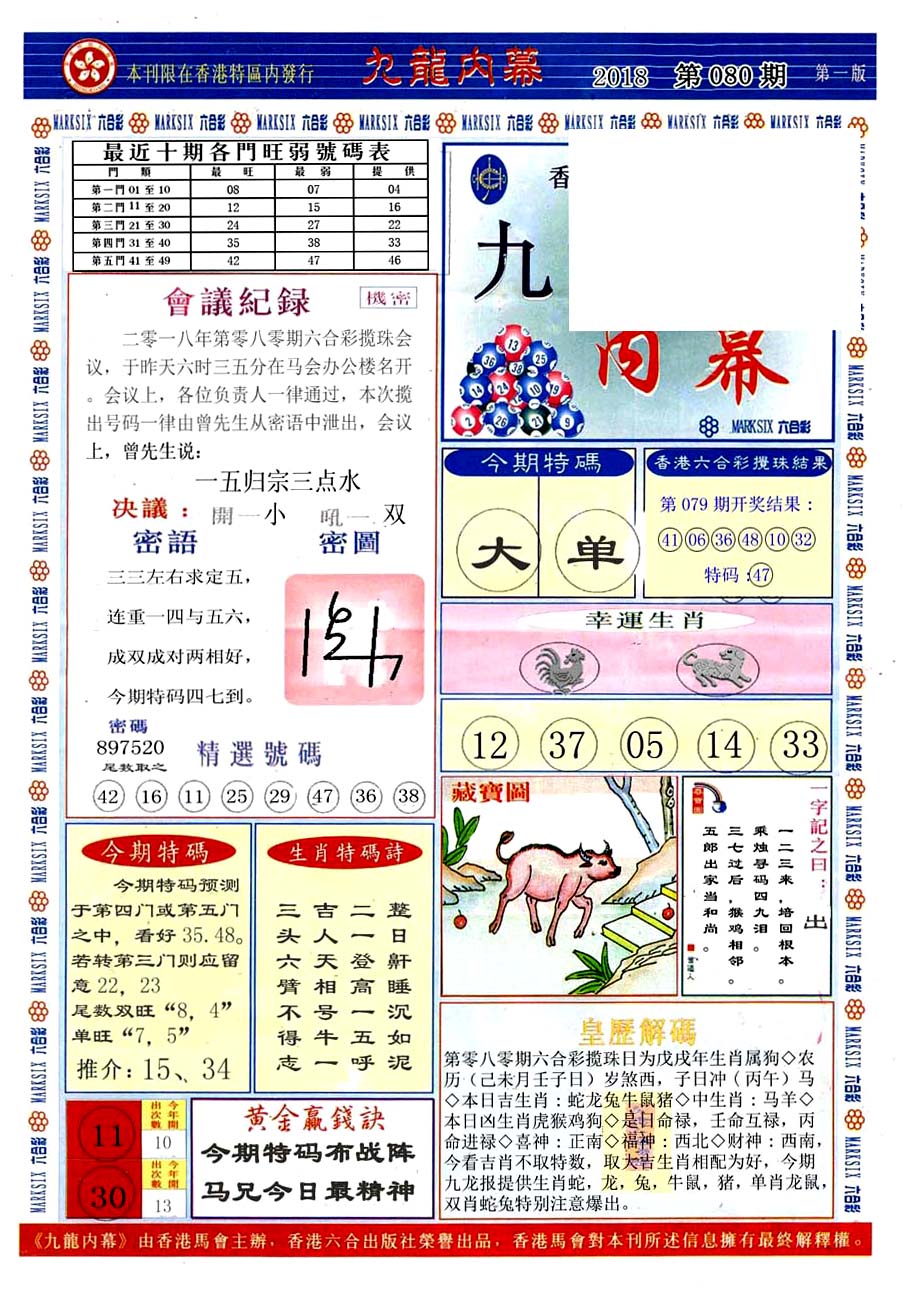 本刊限在香港特區内發行
九龍内幕
2018 第080期
第一版
MARKSIX 六合彩 MARKSIX 六合彩 MARKSIX 六合彩 MARKSIX 六合彩 MARKSIX 六合彩 MARKSIX 六合彩 MARKSIX 六合彩 MARKSIX 六合彩
最近十期各門旺弱號碼表
門類 最旺 最弱 提供
第一門 01 至 10 08 07 04
第二門 11 至 20 12 15 16
第三門 21 至 30 24 27 22
第四門 31 至 40 35 38 33
第五門 41 至 49 42 47 46
會議紀録
機密
二零一八年第零八零期六合彩揽珠会
议，于昨天六时三五分在马会办公楼名开
。会议上，各位负责人一律通过，本次揽
出号码一律由曾先生从密语中泄出，会议
上，曾先生说：
一五归宗三点水
决議： 開一小 吼一 双
密語 密圖
三三左右求定五，
连重一四与五六，
成双成对两相好，
今期特码四七到。
密碼
897520
尾数取之
精選號碼
42 16 11 25 29 47 36 38
香
九
内幕
13
36 25
14 24 10 19
2 26 21 9
MARKSIX 六合彩
今期特碼
大 单
香港六合彩攪珠結果
第 079 期开奖结果：
41 06 36 48 10 32
特码：47
幸運生肖
12 37 05 14 33
藏寶圖
一字記之曰：出
一二三来，培回根本。
乘烛寻码四九泪。
三七过后，猴鸡相邻。
五郎出家当和尚。
今期特碼
今期特码预测
于第四门或第五门
之中，看好 35.48。
若转第三门则应留
意 22，23
尾数双旺“8，4”
单旺“7，5”
推介：15、34
生肖特碼詩
三吉二整
头人一日
六天登鼾
臂相高睡
不号一沉
得牛五如
志一呼泥
皇歷解碼
第零八零期六合彩揽珠日为戊戌年生肖属狗◇农
历（己未月壬子日）岁煞西，子日冲（丙午）马
◇本日吉生肖：蛇龙兔牛鼠猪◇中生肖：马羊◇
本日凶生肖虎猴鸡狗◇是日命禄，壬命互禄，丙
命进禄◇喜神：正南◇福神：西北◇财神：西南，
今看吉肖不取特数，取大吉生肖相配为好，今期
九龙报提供生肖蛇，龙，兔，牛鼠，猪，单肖龙鼠，
双肖蛇兔特别注意爆出。
11 今年開出次數 10
30 今年開出次數 13
黄金贏錢訣
今期特码布战阵
马兄今日最精神
《九龍内幕》由香港馬會主辦，香港六合出版社榮譽出品，香港馬會對本刊所述信息擁有最終解釋權。